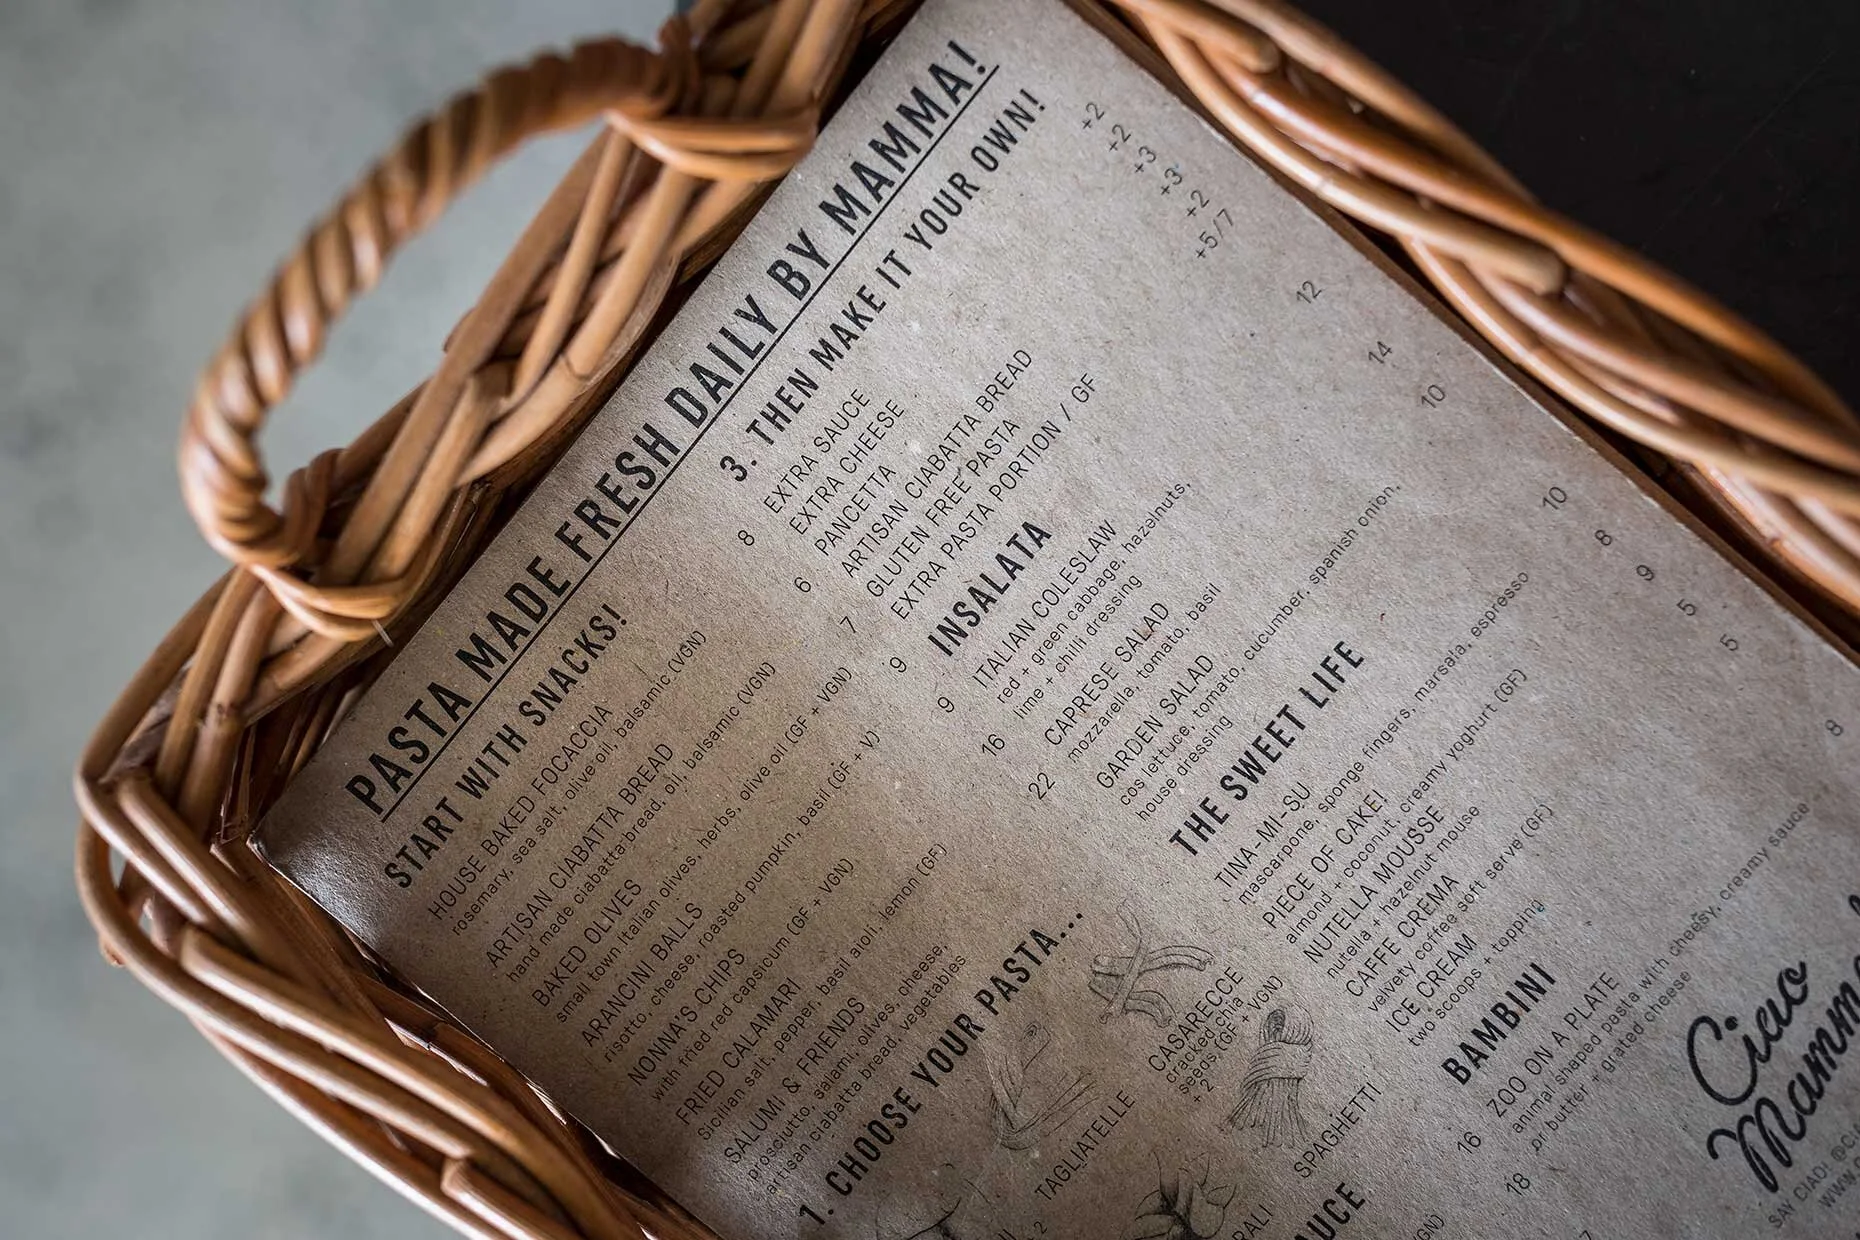 PASTA MADE FRESH DAILY BY MAMMA!
START WITH SNACKS!
HOUSE BAKED FOCACCIA 8
rosemary, sea salt, olive oil, balsamic (VGN)
ARTISAN CIABATTA BREAD 6
hand made ciabatta bread, oil, balsamic (VGN)
BAKED OLIVES 7
small town italian olives, herbs, olive oil (GF + VGN)
ARANCINI BALLS 9
risotto, cheese, roasted pumpkin, basil (GF + V)
NONNA'S CHIPS 9
with fried red capsicum (GF + VGN)
FRIED CALAMARI 16
Sicilian salt, pepper, basil aioli, lemon (GF)
SALUMI & FRIENDS 22
prosciutto, salami, olives, cheese,
artisan ciabatta bread, vegetables
1. CHOOSE YOUR PASTA...
TAGLIATELLE
CASARECCE
cracked chia
seeds (GF + VGN)
+ 2
SPAGHETTI
16
18
3. THEN MAKE IT YOUR OWN!
EXTRA SAUCE +2
EXTRA CHEESE +2
PANCETTA +3
ARTISAN CIABATTA BREAD +3
GLUTEN FREE PASTA +2
EXTRA PASTA PORTION / GF +5/7
INSALATA
ITALIAN COLESLAW 12
red + green cabbage, hazelnuts,
lime + chilli dressing
CAPRESE SALAD 14
mozzarella, tomato, basil
GARDEN SALAD 10
cos lettuce, tomato, cucumber, spanish onion,
house dressing
THE SWEET LIFE
TINA-MI-SU 10
mascarpone, sponge fingers, marsala, espresso
PIECE OF CAKE! 8
almond + coconut, creamy yoghurt (GF)
NUTELLA MOUSSE 9
nutella + hazelnut mouse
CAFFE CREMA 5
velvety coffee soft serve (GF)
ICE CREAM 5
two scoops + topping
BAMBINI
ZOO ON A PLATE 8
animal shaped pasta with cheesy, creamy sauce
or butter + grated cheese
Ciao
SAY CIAO!